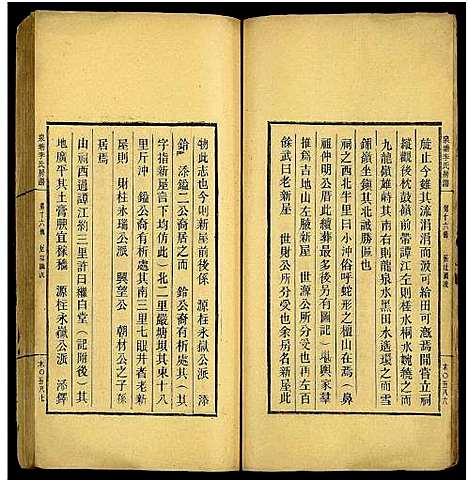 旋止今雖其流涓涓而汲可給田可漑焉閒嘗立祠
縱觀後枕鼓嶺前帶譚江左則桂水桐水婉繞之而
九龍嶺雄峙其南右則龍泉水黑田水迤環之而雪
鋪嶺坐鎮其北誠勝區也
祠之西北半里曰小沖俗呼蛇形之檀山在焉（鼻
祖仲明公厝此續葬最多後另有圖記）堪輿家羣
推爲吉地山左腋新屋　世源公所分受也山右腋
餘武曰老新屋　世財公所分受也余房名新屋此
物此志也今則新屋前後係　源柱永嶽公派　添
鈴　添鎰二公裔居之而　鈴公裔有析處其（凡
字指新屋言下均仿此）北二里嚴塘坝其東十八
里斤沖　鎰公裔有析處其南三里七眼井者老新
屋則　財柱永瑞公派　興望公　朝材公之子孫
居焉
由祠西過譚江約三里許曰繼自堂（記附後）其
地廣平其土膏腴宜稼穡　源柱永嶽公派　添鐸
泉塘李氏房譜
第十六冊
木〇五八六
泉塘李氏房譜
第十六冊
木〇五八七